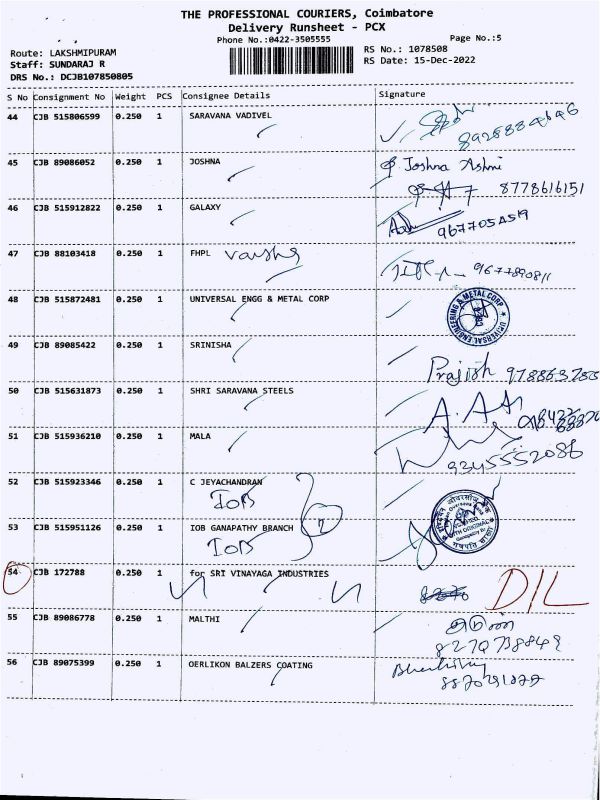 THE PROFESSIONAL COURIERS, Coimbatore
Delivery Runsheet - PCX
Phone No.:0422-3505555
Page No.:5
Route: LAKSHMIPURAM
Staff: SUNDARAJ R
DRS No.: DCJB107850805
RS No.: 1078508
RS Date: 15-Dec-2022
S No Consignment No Weight PCS Consignee Details Signature
44 CJB 515806599 0.250 1 SARAVANA VADIVEL
45 CJB 89086052 0.250 1 JOSHNA Joshna Ashni
8778616151
46 CJB 515912822 0.250 1 GALAXY
9677054519
47 CJB 88103418 0.250 1 FHPL
48 CJB 515872481 0.250 1 UNIVERSAL ENGG & METAL CORP
UNIVERSAL ENGINEERING & METAL CORP
49 CJB 89085422 0.250 1 SRINISHA
Prajish
50 CJB 515631873 0.250 1 SHRI SARAVANA STEELS
51 CJB 515936210 0.250 1 MALA
9345552086
52 CJB 515923346 0.250 1 C JEYACHANDRAN
IOB
53 CJB 515951126 0.250 1 IOB GANAPATHY BRANCH
IOB
54 CJB 172788 0.250 1 for SRI VINAYAGA INDUSTRIES D/L
55 CJB 89086778 0.250 1 MALTHI
8270738849
56 CJB 89075399 0.250 1 OERLIKON BALZERS COATING